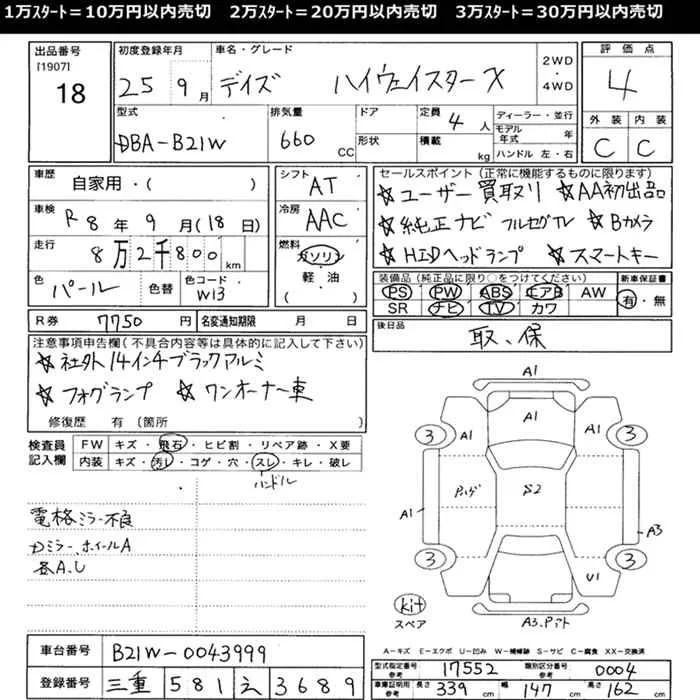 1万ｽﾀｰﾄ＝10万円以内売切 2万ｽﾀｰﾄ＝20万円以内売切 3万ｽﾀｰﾄ＝30万円以内売切
出品番号 [1907] 18
初度登録年月 25 9月
車名・グレード デイズ ハイウェイスターX
2WD・4WD
評価点 4
外装 C 内装 C
型式 DBA-B21W
排気量 660 CC
ドア
形状
定員 4人
積載 kg
ディーラー・並行
モデル年式 年
ハンドル 左・右
車歴 自家用・( )
車検 R8年9月(18日)
走行 8万2千800km
色 パール 色替 色コード W13
シフト AT
冷房 AAC
燃料 ガソリン 軽・油 ( )
セールスポイント(正常に機能するものに限ります)
☆ユーザー買取り ☆AA初出品
☆純正ナビ フルセグTV ☆Bカメラ
☆HIDヘッドランプ ☆スマートキー
装備品(純正品に限り○をつけてください) 新車保証書
PS PW ABS エアB AW 有・無
SR ナビ TV カワ
R券 7750円 名変通知期限 月 日
後日品 取、保
注意事項申告欄(不具合内容等は具体的に記入して下さい)
☆社外14インチブラックアルミ
☆フォグランプ ☆ワンオーナー車
修復歴 有 〔箇所 〕
検査員記入欄
FW キズ・飛石・ヒビ割・リペア跡・X要
内装 キズ・汚レ・コゲ・穴・スレ・キレ・破レ
ハンドル
電格ミラー不良
Dミラー、ホイールA
各A.U
A1
3 A1 A1 A1 3
A1 S2 A3
3 U1 3
kit スペア
A3.
A－キズ E－エクボ U－凹み W－補修跡 S－サビ C－腐食 XX－交換済
車台番号 B21W-0043999
登録番号 三重 581 え 3689
型式指定番号 参考 17552 類別区分番号 参考 0004
車庫証明用 参考 長さ 339cm 幅 147cm 高さ 162cm